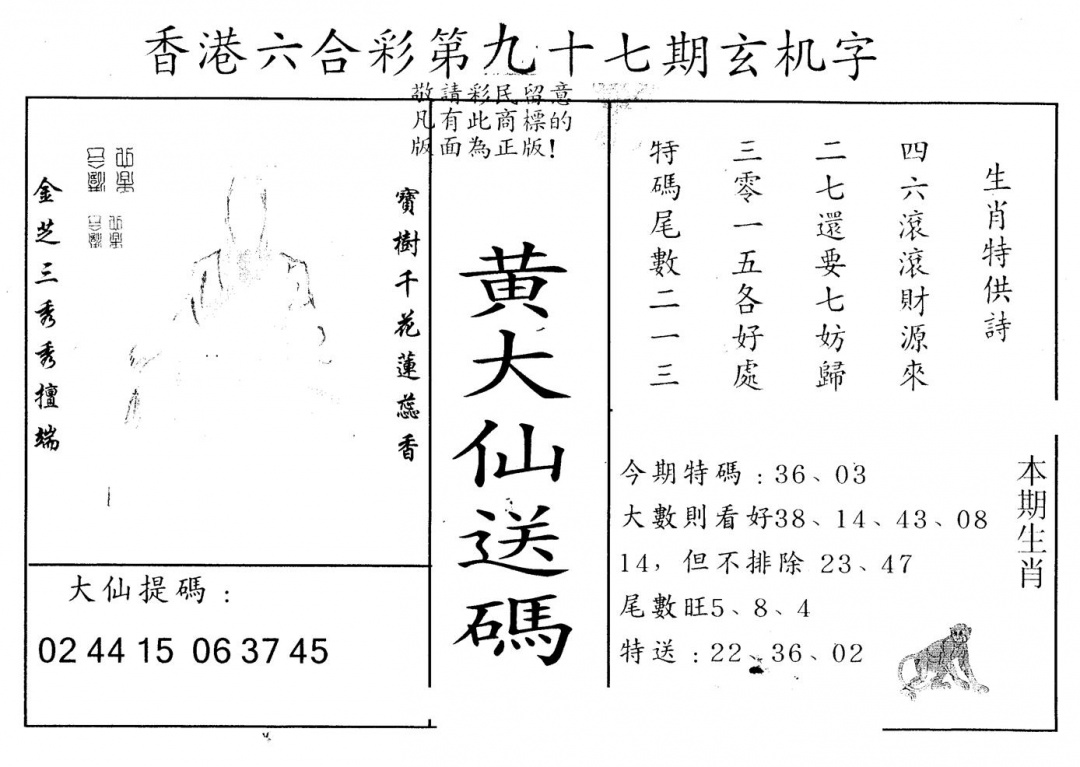 香港六合彩第九十七期玄机字
敬請彩民留意
凡有此商標的
版面為正版!
生肖特供詩
四六滾滾財源來
二七還要七妨歸
三零一五各好處
特碼尾數二一三
寶樹千花蓮蕊香
金芝三秀秀擅端
黃大仙送碼
今期特碼:36、03
大數則看好38、14、43、08
14,但不排除 23、47
尾數旺5、8、4
特送:22、36、02
本期生肖
大仙提碼:
02 44 15 06 37 45